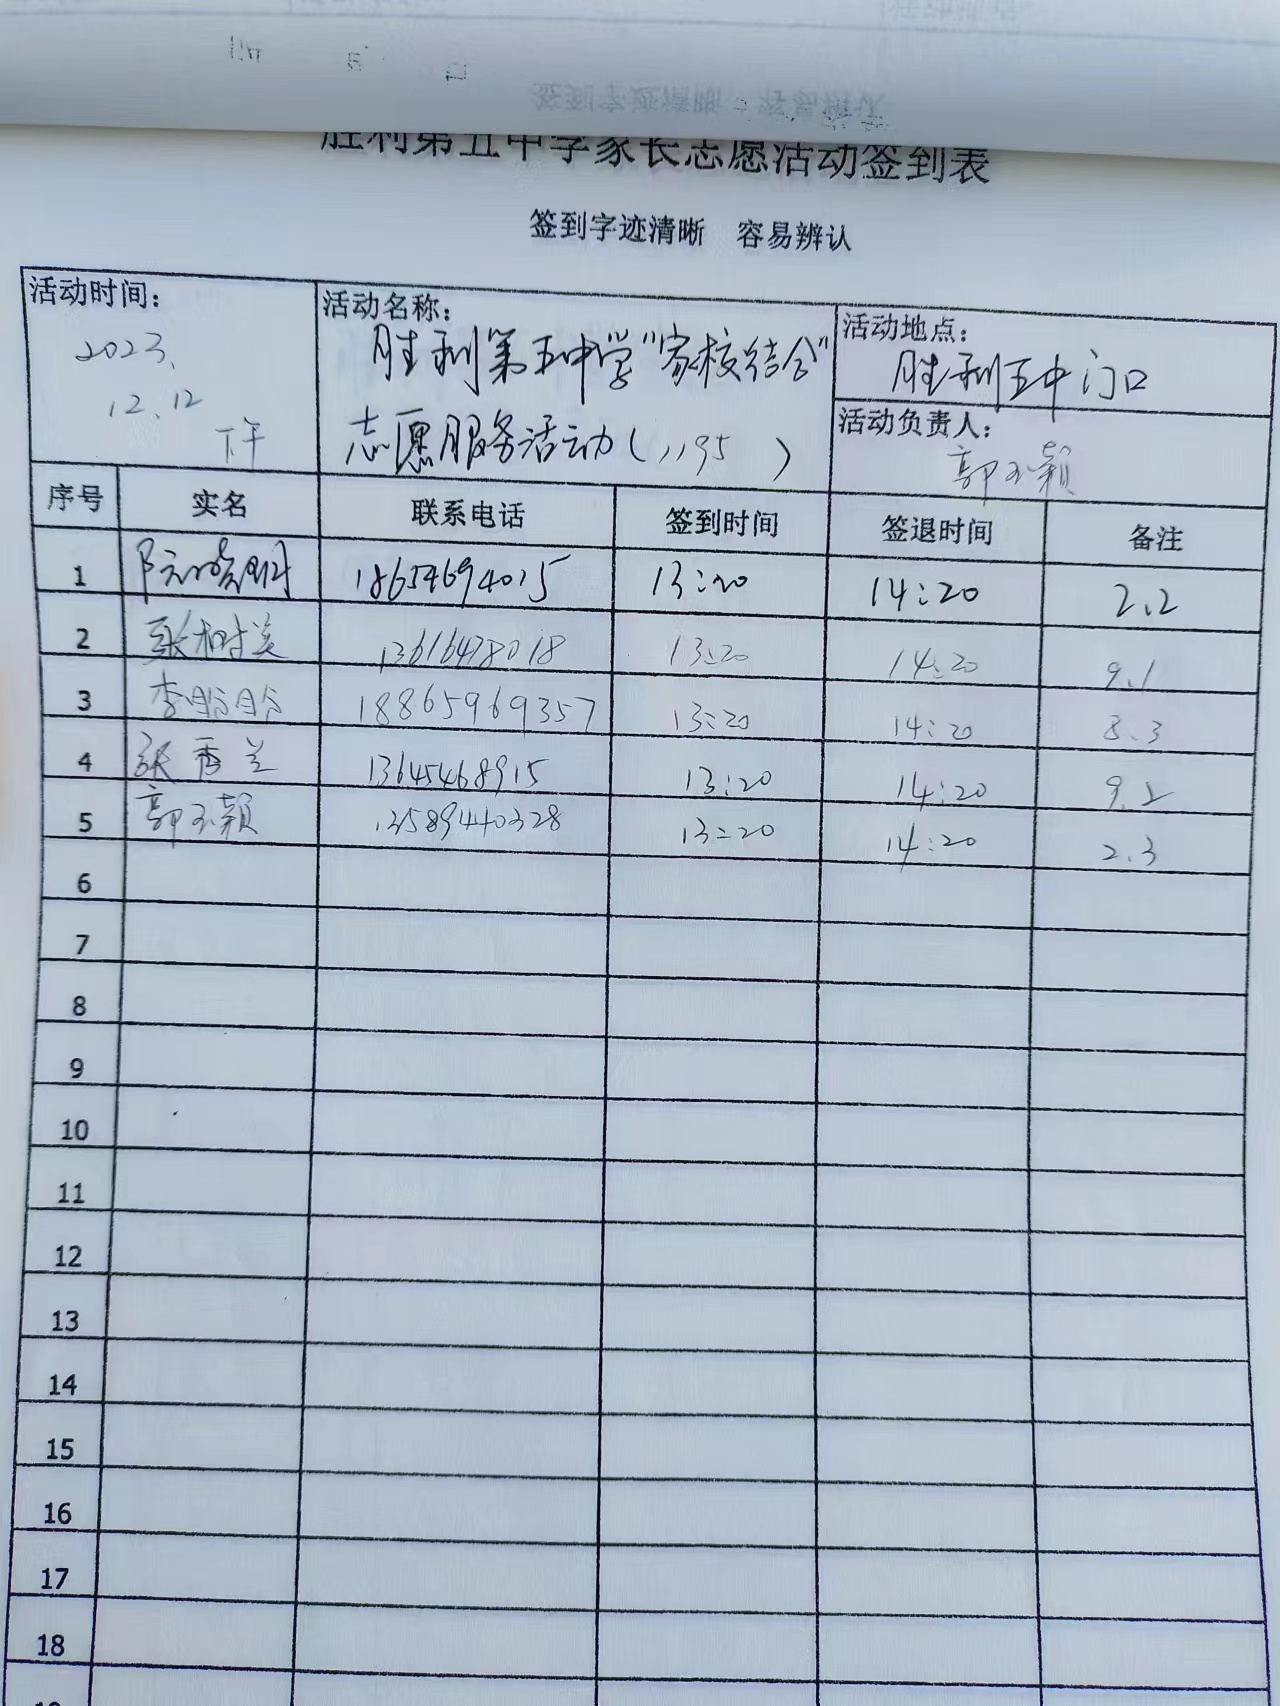 胜利第五中学家长志愿活动签到表
签到字迹清晰 容易辨认
活动时间:
2023.
12.12
下午
活动名称:
胜利第五中学"家校结合"
志愿服务活动(1195)
活动地点:
胜利五中门口
活动负责人:
郭玉颖
序号 实名 联系电话 签到时间 签退时间 备注
1 阮晓明 18654694015 13:20 14:20 2.2
2 张树美 13616478018 13:20 14:20 9.1
3 李盼盼 18865969357 13:20 14:20 8.3
4 张秀兰 13645468915 13:20 14:20 9.2
5 郭玉颖 13589440328 13:20 14:20 2.3
6
7
8
9
10
11
12
13
14
15
16
17
18